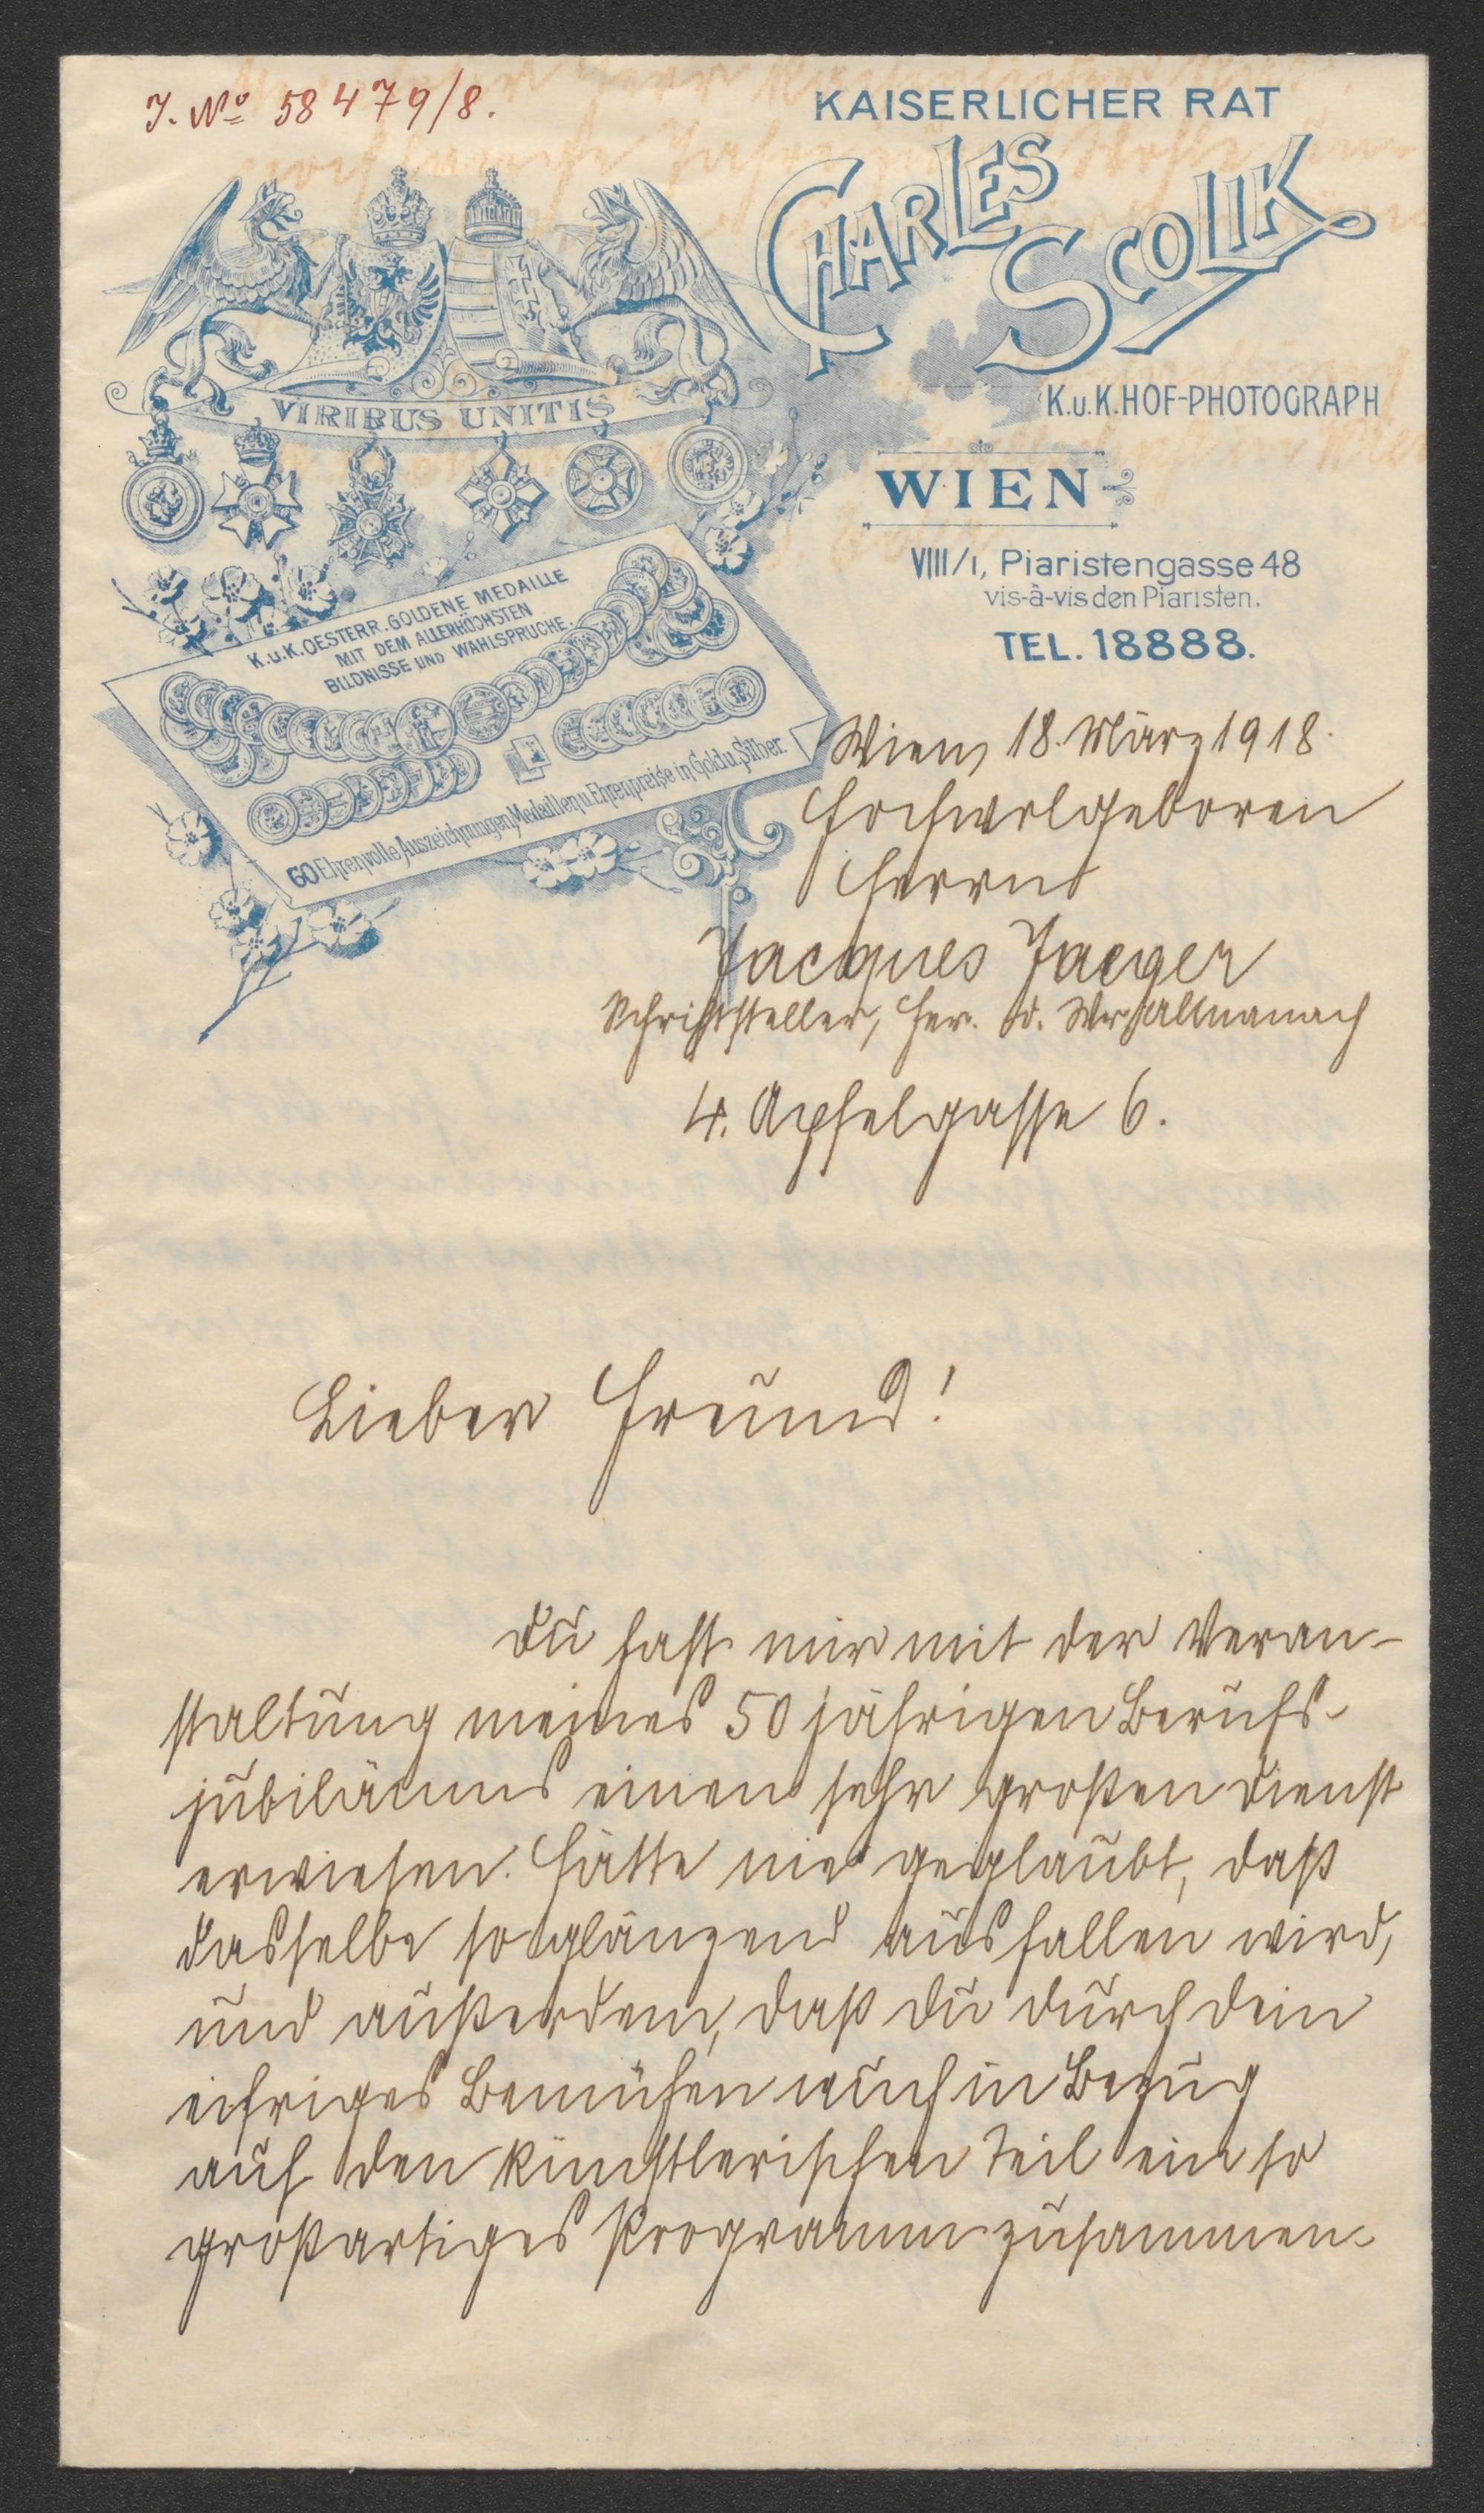 J. No 58479/8.
KAISERLICHER RAT
CHARLES SCOLIK
K.u.K. HOF-PHOTOGRAPH
WIEN
VIII/1, Piaristengasse 48
vis-à-vis den Piaristen.
TEL. 18888.
VIRIBUS UNITIS
K.u.K. OESTERR. GOLDENE MEDAILLE
MIT DEM ALLERHÖCHSTEN
BILDNISSE UND WAHLSPRUCHE.
60 Ehrenvolle Auszeichnungen, Medaillen u. Ehrenpreise in Gold u. Silber.
Wien, 18. März 1918.
Hochwolgeboren
Herrn
Jacques Jaeger
Schriftsteller, Her. d. Wr Allmanach
4. Apfelgasse 6.
Lieber Freund!
Du hast mir mit der Veran-
staltung meines 50 jährigen Berufs-
jubiläums einen sehr großen Dienst
erwiesen. Hätte nie geglaubt, daß
dasselbe so glänzend ausfallen wird,
und außerdem, daß du durch dein
eifriges Bemühen auch in Bezug
auf den künstlerischen Teil ein so
großartiges Programm zusammen-